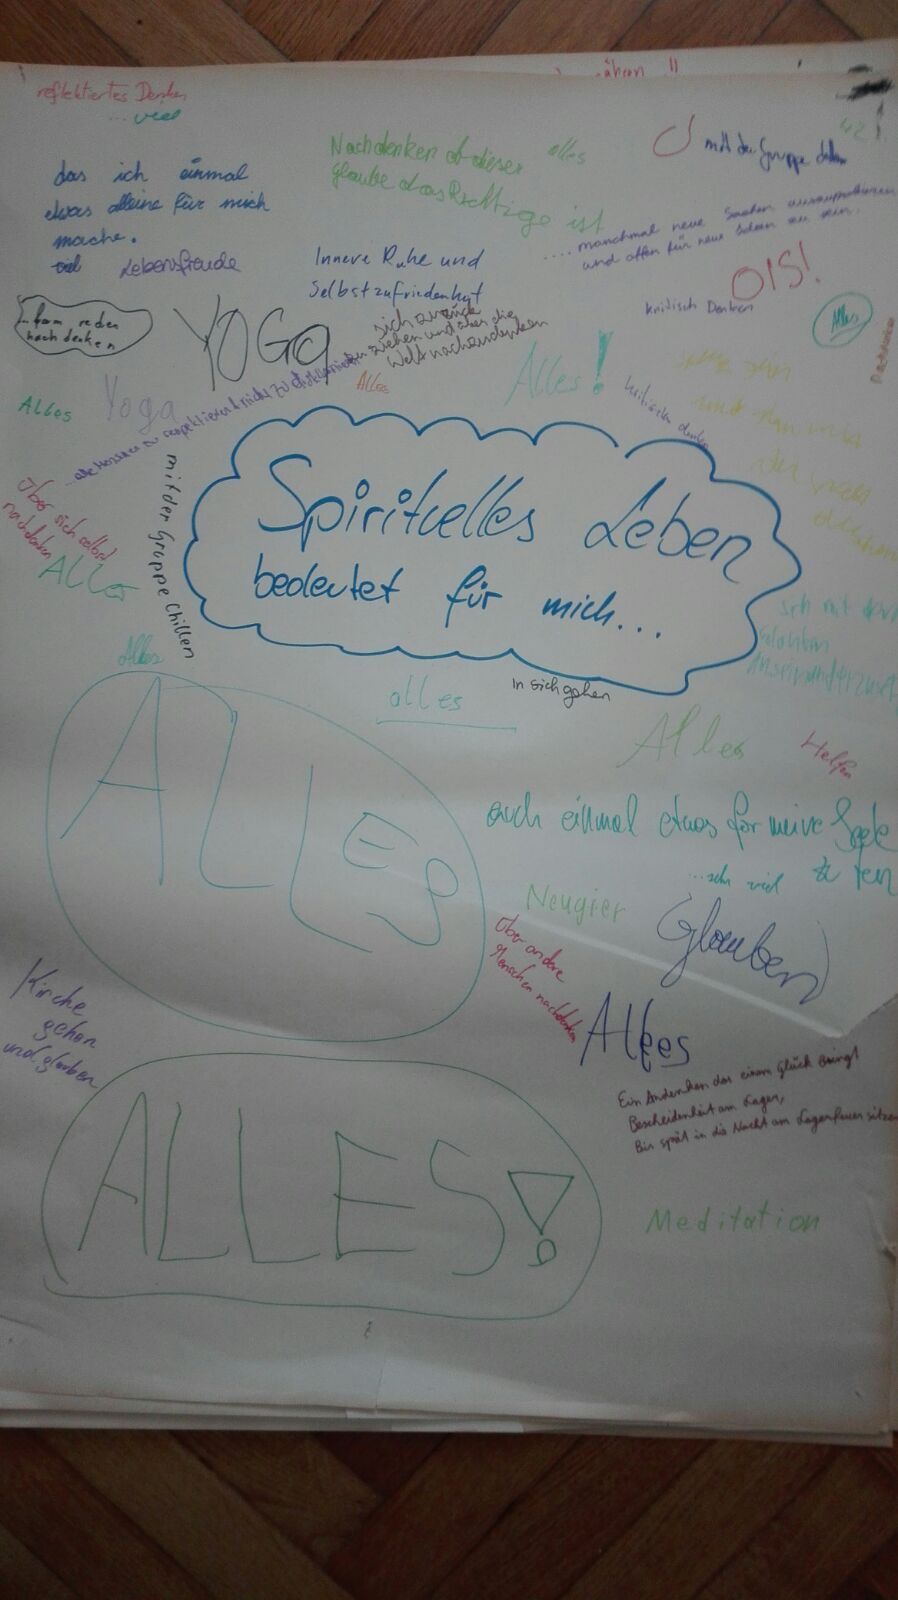 reflektiertes Denken
...viel
das ich einmal
etwas alleine für mich
mache.
Lebensfreude
Nachdenken ob dieser
Glaube das Richtige ist
alles
mit der Gruppe
42
.... manchmal neue Sachen auszuprobieren
und offen für neue Ideen zu sein..
OIS!
Innere Ruhe und
Selbstzufriedenheit
kritisch Denken
Alles
reden
nachdenken
YOGa
sich zurück
zu ziehen und über die
Welt nachzudenken
Alles
Alles!
kritisch denken
Alles
Yoga
...alle Menschen zu respektieren & nicht zu diskriminieren
Über sich selbst
nachdenken
Alles
mit der Gruppe Chillen
Spirituelles Leben
bedeutet für mich...
sich mit dem
Auseinanderzusetz
Alles
alles
in sich gehen
Alles
Helfen
ALLES
auch einmal etwas für meine Seele
zu tun
...sehr viel
Neugier
Glauben
Über andere
Menschen nachdenken
Alles
Kirche
gehen
und glauben
Ein Andenken das einem Glück bringt
Bescheidenheit am Lager,
Bis spät in die Nacht am Lagerfeuer sitzen
ALLES!
Meditation